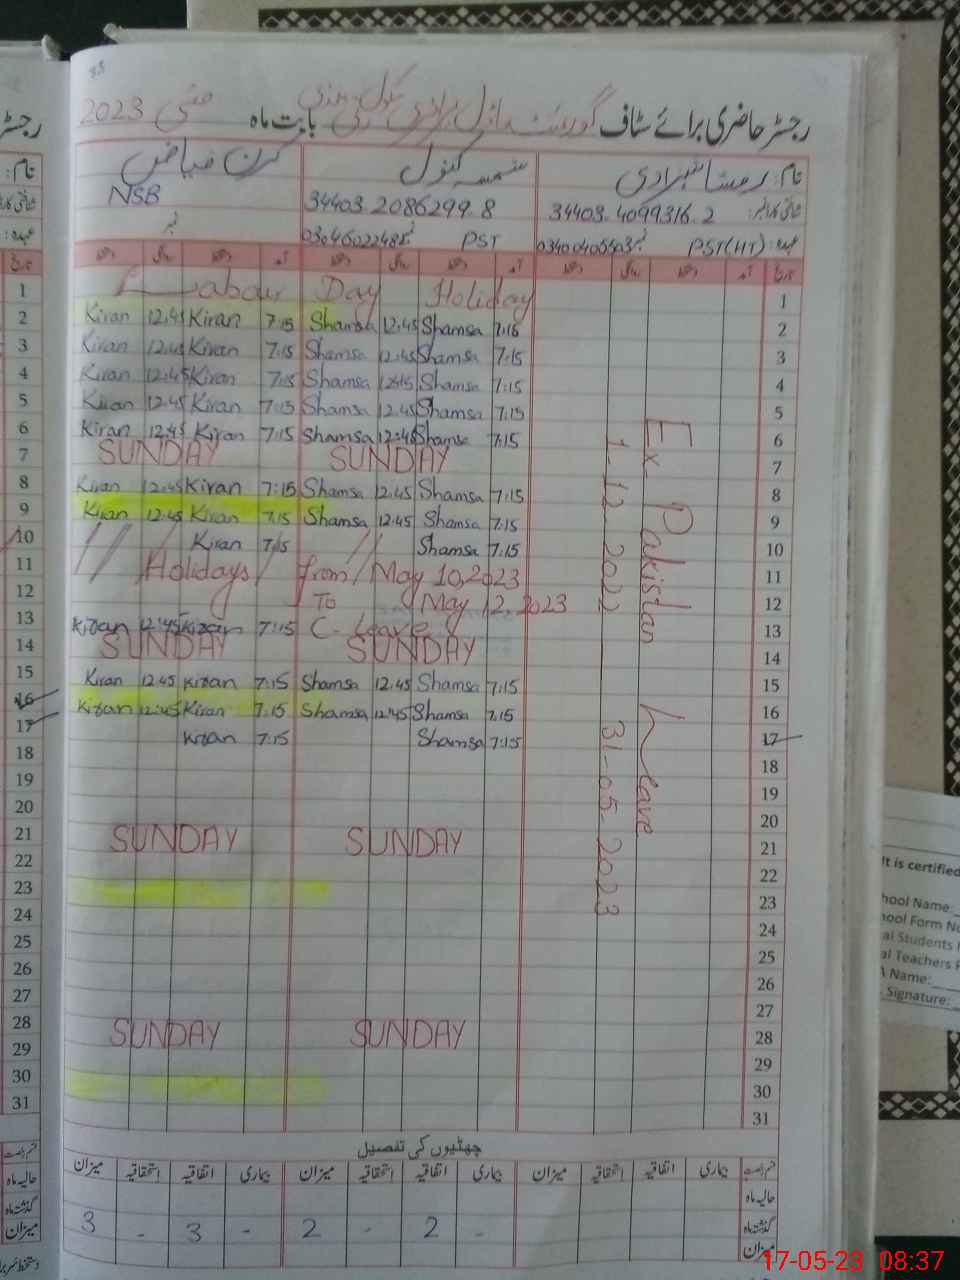 33
رجسٹر حاضری برائے سٹاف گورنمنٹ ماڈل پرائمری سکول بابت ماہ مئی 2023
نام: رمشا شہزادی شمسہ کنول کرن فیاض
شناختی کارڈ نمبر: 34403-4099316-2 34403-2086299-8 NSB
عہدہ: PST(HT) نمبر PST نمبر نمبر
تاریخ آمد دستخط روانگی دستخط آمد دستخط روانگی دستخط آمد دستخط روانگی دستخط تاریخ
1 Labour Day Holiday 1
Kiran 12:45 Kiran 7:15 Shamsa 12:45 Shamsa 7:15 2
Kiran 12:45 Kiran 7:15 Shamsa 12:45 Shamsa 7:15 3
Kiran 12:45 Kiran 7:15 Shamsa 12:45 Shamsa 7:15 4
Kiran 12:45 Kiran 7:15 Shamsa 12:45 Shamsa 7:15 5
Kiran 12:45 Kiran 7:15 Shamsa 12:45 Shamsa 7:15 6
SUNDAY SUNDAY 7
Kiran 12:45 Kiran 7:15 Shamsa 12:45 Shamsa 7:15 8
Kiran 12:45 Kiran 7:15 Shamsa 12:45 Shamsa 7:15 9
Kiran 7:15 Shamsa 7:15 10
Holidays from May 10,2023 11
To May 12,2023 12
Kiran 12:45 Kiran 7:15 C-Leave 13
SUNDAY SUNDAY 14
Kiran 12:45 Kiran 7:15 Shamsa 12:45 Shamsa 7:15 15
Kiran 12:45 Kiran 7:15 Shamsa 12:45 Shamsa 7:15 16
Kiran 7:15 Shamsa 7:15 17
18
19
20
SUNDAY SUNDAY 21
22
23
24
25
26
27
SUNDAY SUNDAY 28
29
30
31
Ex Pakistan Leave
1-12-2022 31-05-2023
چھٹیوں کی تفصیل
بیماری اتفاقیہ استحقاقیہ میزان بیماری اتفاقیہ استحقاقیہ میزان بیماری اتفاقیہ استحقاقیہ میزان
حالیہ ماہ
گذشتہ ماہ
میزان
3 - 3 - 2 - 2 -
It is certified
hool Name:
hool Form No
al Students
al Teachers
Name:
Signature:
17-05-23 08:37